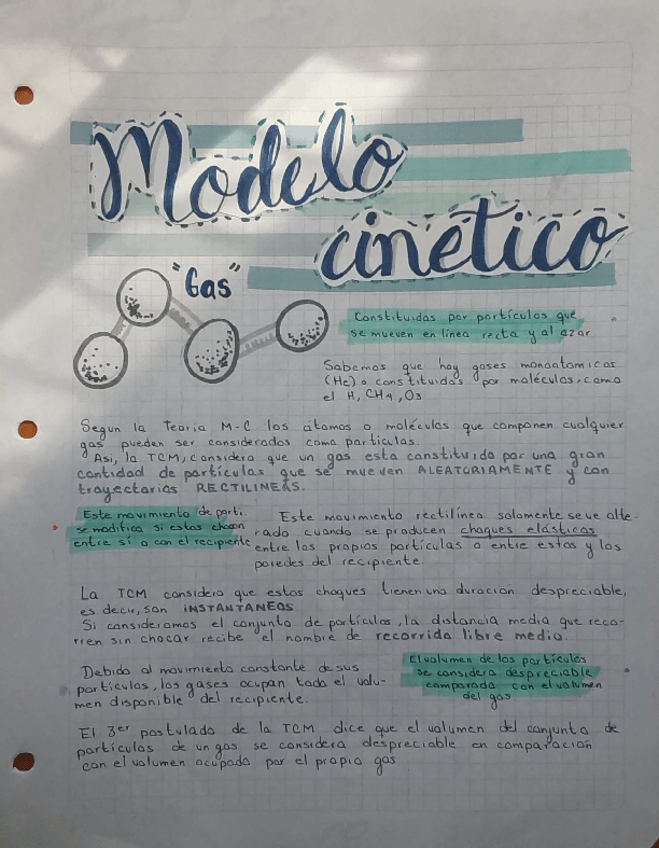 Modelo
cinetico
"Gas"
Constituidas por partículas que
se mueven en línea recta y al azar
Sabemos que hay gases monoatomicos
(He) o constituidas por moléculas, como
el H, CH4, O3
Segun la Teoria M-C los átomos o moléculas que componen cualquier
gas pueden ser considerados como particulas.
Asi, la TCM, considera que un gas esta constituido por una gran
cantidad de partículas que se mueven ALEATORIAMENTE y con
trayectorias RECTILINEAS.
Este movimiento de parti.
se modifica si estas chocan
entre sí o con el recipiente
Este movimiento rectilínea solamente se ve alte-
rado cuando se producen choques elásticos
entre las propias partículas o entre estas y las
paredes del recipiente.
La TCM considera que estos choques tienen una duración despreciable,
es decir, son INSTANTANEOS
Si consideramos el conjunto de partículas, la distancia media que reco-
rren sin chocar recibe el nombre de recorrido libre medio.
Debido al movimiento constante de sus
partículas, los gases ocupan todo el volu-
men disponible del recipiente.
El volumen de las partículas
se considera despreciable
comparada con el volumen
del gas
El 3er postulado de la TCM dice que el volumen del conjunto de
partículas de un gas se considera despreciable en comparación
con el volumen ocupado por el propio gas